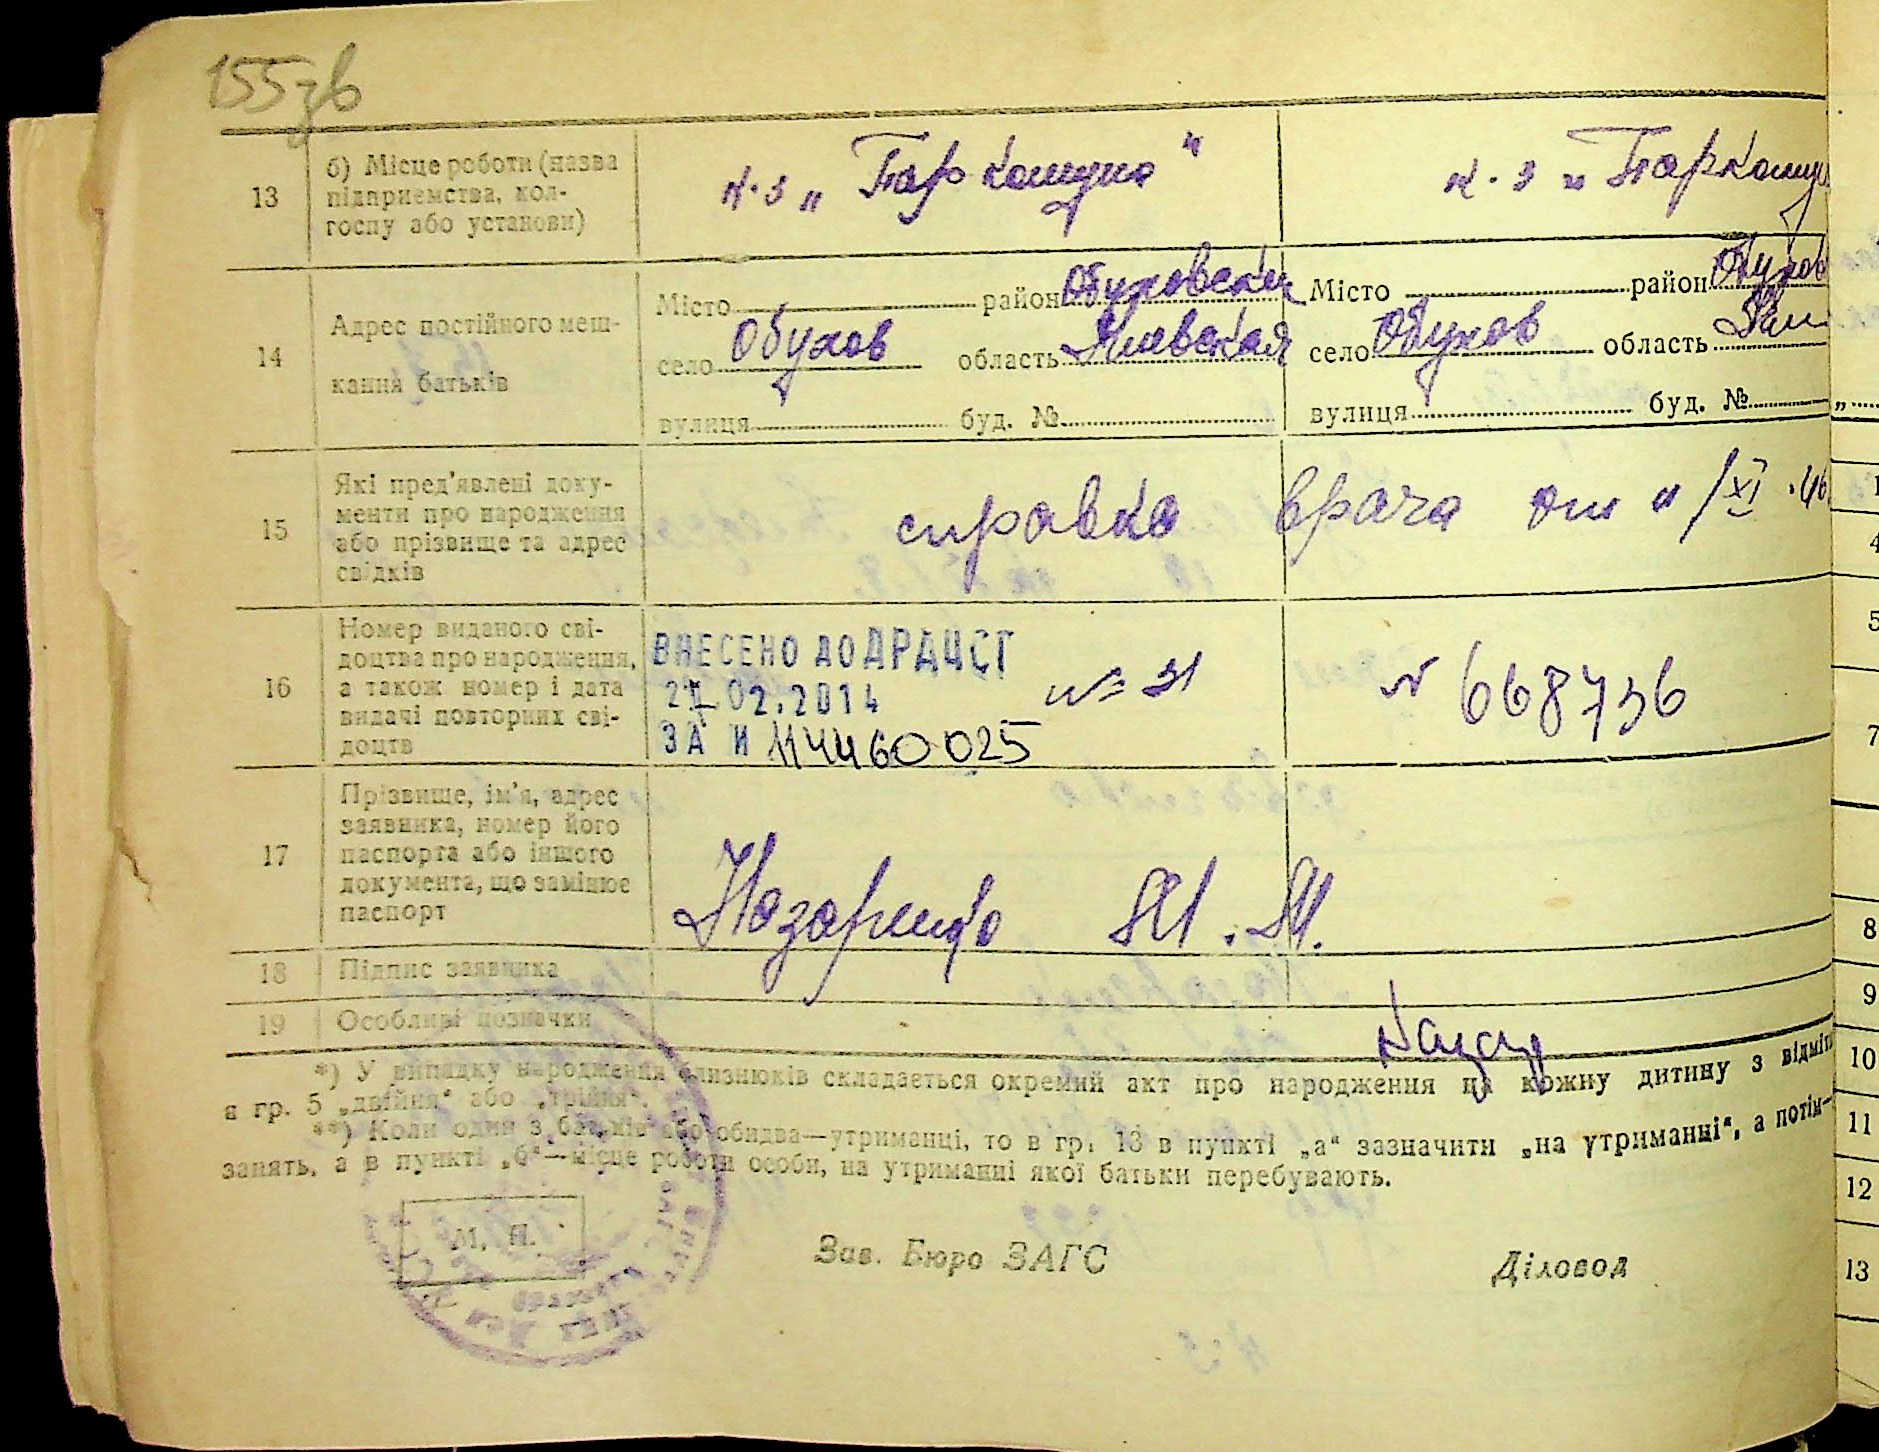 155зв
13
б) Місце роботи (назва
підприємства, кол-
госпу або установи)
к-з „Пар комуна"
к-з „Паркому
14
Адрес постійного меш-
кання батьків
Місто район Обуховский
село Обухов область Киевская
вулиця буд. №
Місто район Обухов
село Обухов область Ки
вулиця буд. №
15
Які пред'явлені доку-
менти про народження
або прізвище та адрес
свідків
справка врача от "/XI.46
16
Номер виданого сві-
доцтва про народження,
а також номер і дата
видачі повторних сві-
доцтв
ВНЕСЕНО ДО ДРАЦСГ
02.2014
ЗА № 11446 0025
№ 31
№ 668736
17
Прізвище, ім'я, адрес
заявника, номер його
паспорта або іншого
документа, що замінює
паспорт
Назаренко М. М.
18
Підпис заявника
Назар
19
Особливі позначки
*) У випадку народження близнюків складається окремий акт про народження на кожну дитину з відміт
в гр. 5 „двійня" або „трійня".
**) Коли один з батьків або обидва—утриманці, то в гр. 13 в пункті „а" зазначити „на утриманні", а потім—
занять, а в пункті „б"—місце роботи особи, на утриманні якої батьки перебувають.
М. П.
Зав. Бюро ЗАГС
Діловод
4
5
7
8
9
10
11
12
13